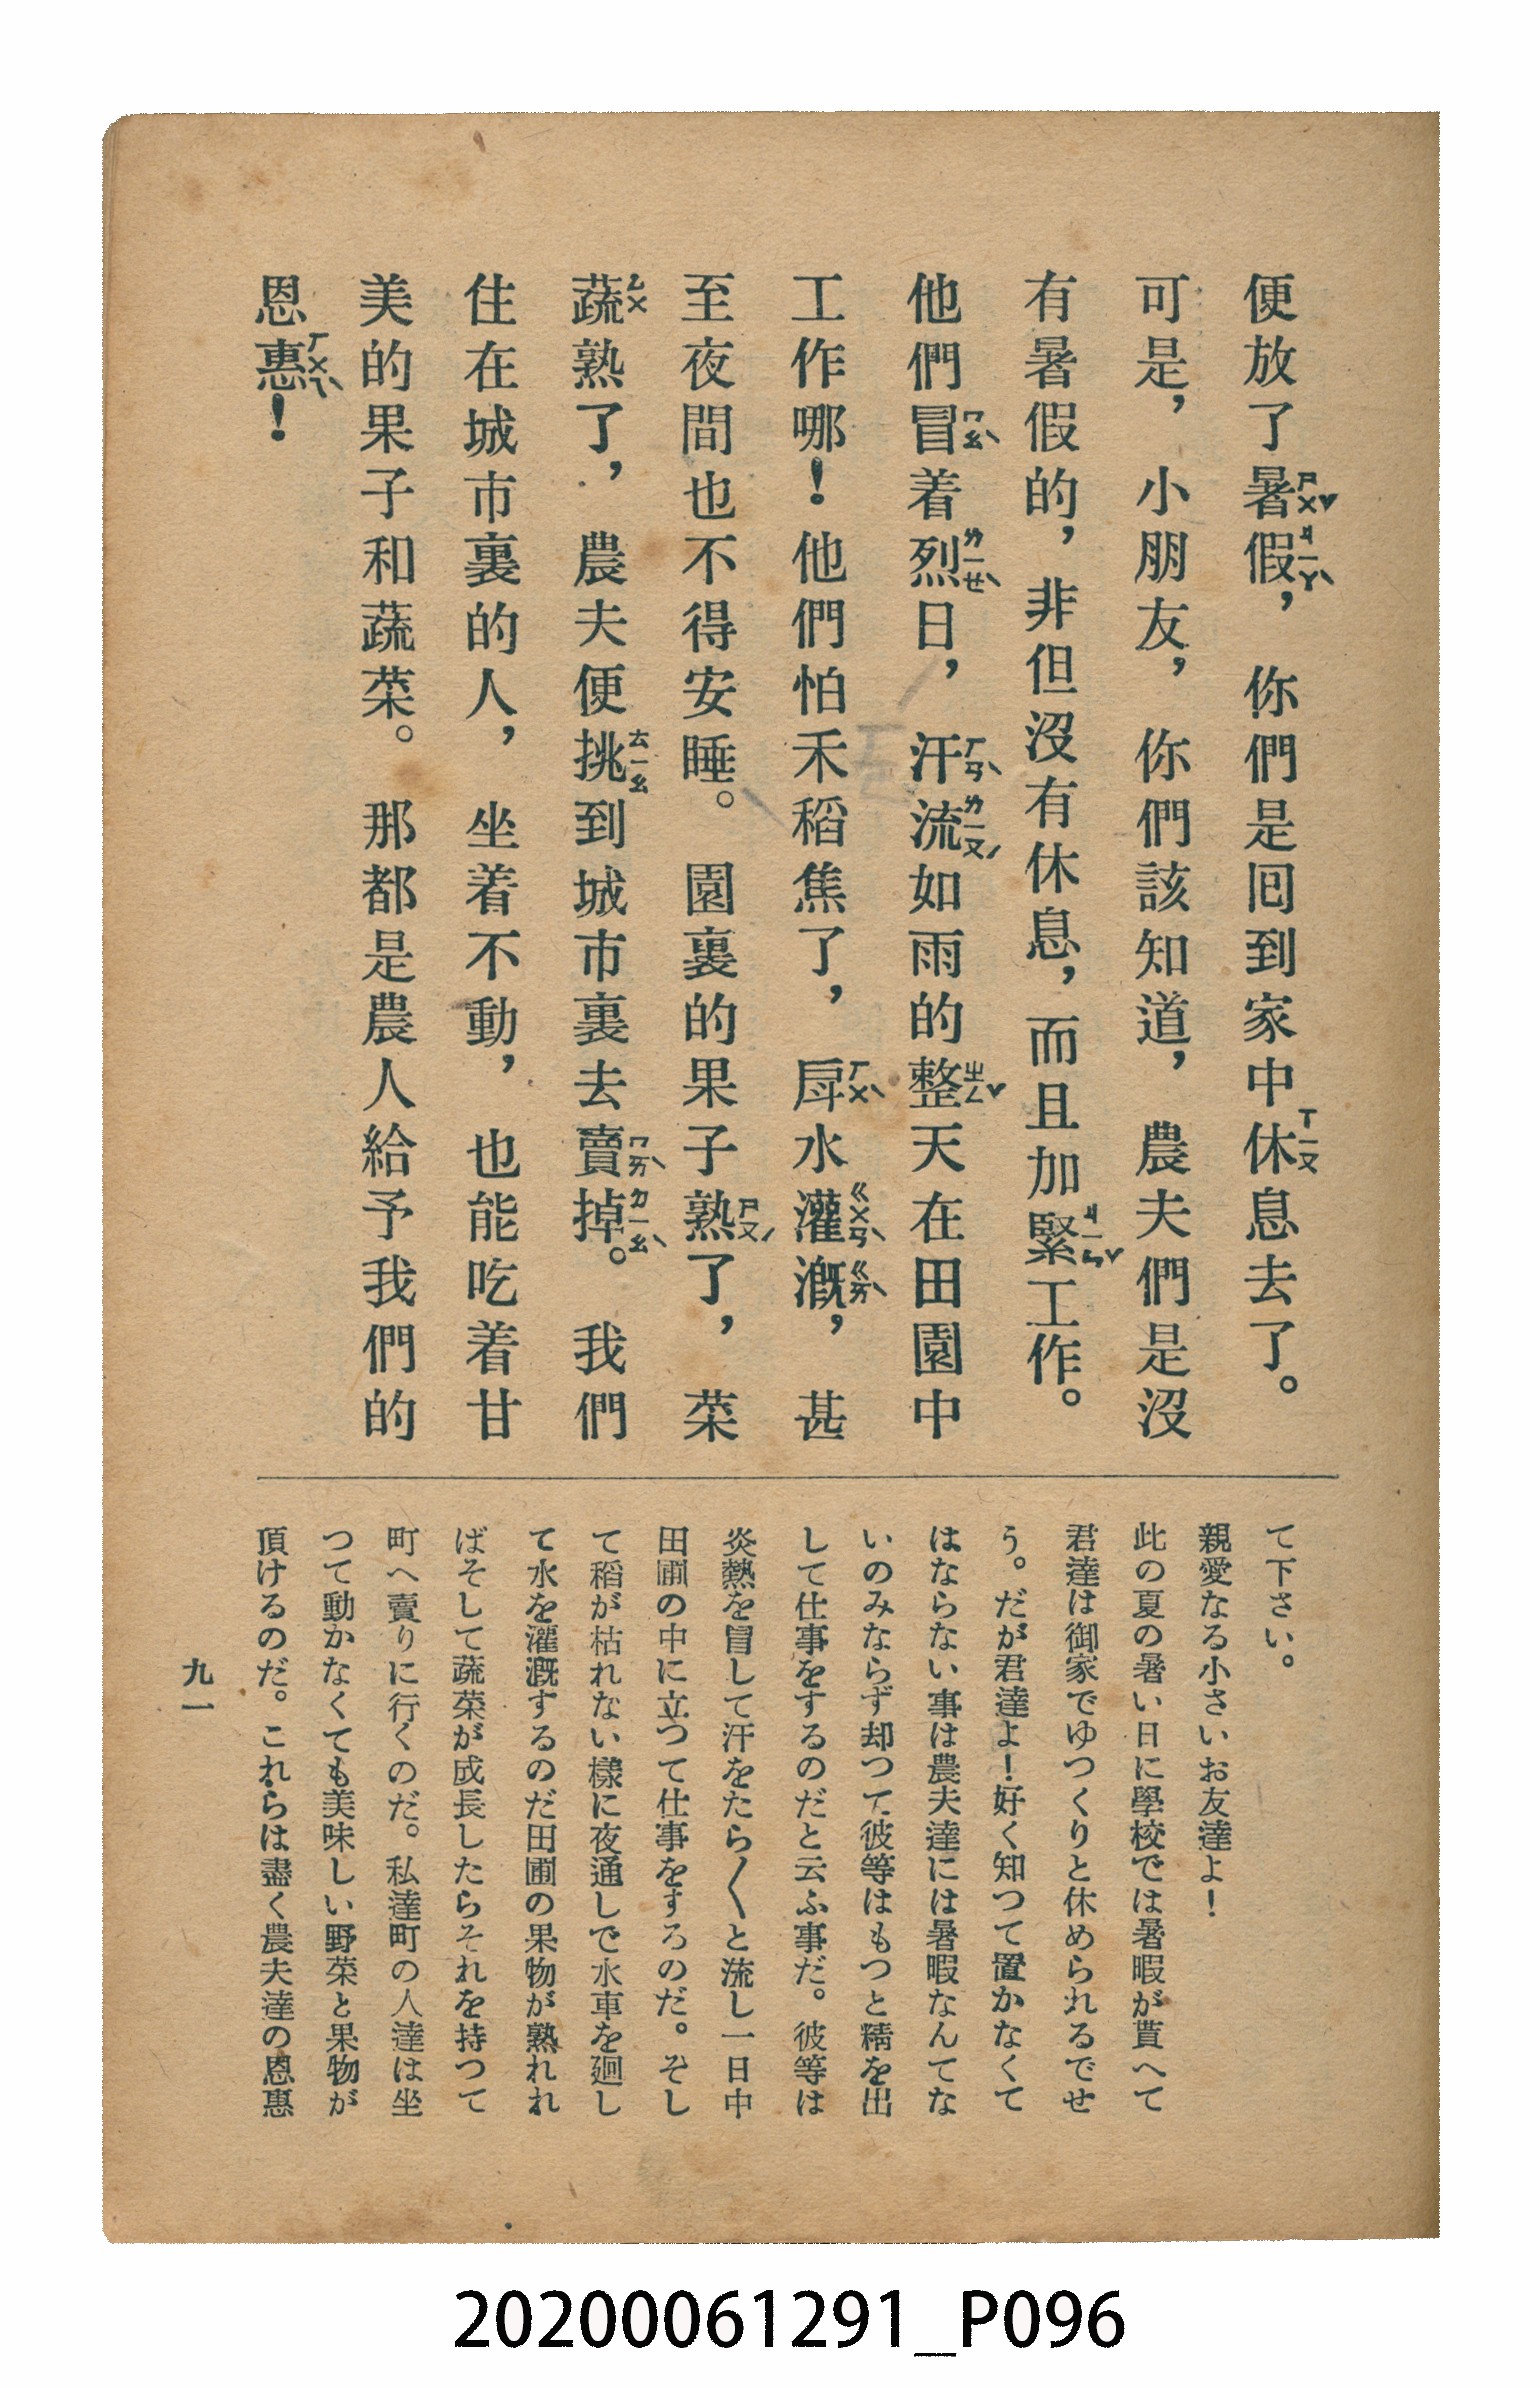 便放了暑假，你們是囘到家中休息去了。
可是，小朋友，你們該知道，農夫們是沒
有暑假的，非但沒有休息，而且加緊工作。
他們冒着烈日，汗流如雨的整天在田園中
工作哪！他們怕禾稻焦了，戽水灌漑，甚
至夜間也不得安睡。園裏的果子熟了，菜
蔬熟了，農夫便挑到城市裏去賣掉。我們
住在城市裏的人，坐着不動，也能吃着甘
美的果子和蔬菜。那都是農人給予我們的
恩惠！
て下さい。
親愛なる小さいお友達よ！
此の夏の暑い日に學校では暑暇が貰へて
君達は御家でゆつくりと休められるでせ
う。だが君達よ！好く知つて置かなくて
はならない事は農夫達には暑暇なんてな
いのみならず却つて彼等はもつと精を出
して仕事をするのだと云ふ事だ。彼等は
炎熱を冒して汗をたら〱と流し一日中
田圃の中に立つて仕事をするのだ。そし
て稻が枯れない樣に夜通しで水車を廻し
て水を灌漑するのだ田圃の果物が熟れれ
ばそして蔬菜が成長したらそれを持つて
町へ賣りに行くのだ。私達町の人達は坐
つて動かなくても美味しい野菜と果物が
頂けるのだ。これらは盡く農夫達の恩惠
九一
20200061291_P096